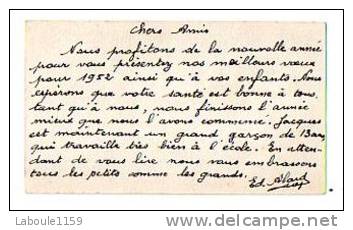 Chers Amis
Nous profitons de la nouvelle année
pour vous présentez nos meilleurs vœux
pour 1952 ainsi qu'à vos enfants. Nous
espérons que votre santé est bonne à tous,
tant qu'à nous, nous finissons l'année
mieux que nous l'avons commencé. Jacques
est maintenant un grand garçon de 13 ans,
qui travaille très bien à l'école. En atten-
dant de vous lire nous vous embrassons
tous les petits comme les grands.
Ed.
Laboule1159
delcampe.net